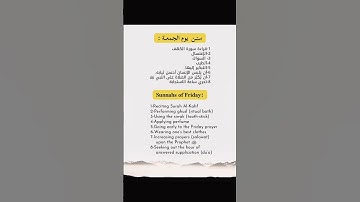 سنن يوم الجمعة :
1-قراءة سورة الكهف.
2-الإغتسال.
3- السواك.
4-الطيب.
5-التبكير إليها.
6-أن يلبس الإنسان أحسن ثيابه.
7-أن يُكثر من الصلاة على النبي ﷺ.
8-تحري ساعة الاستجابة.
Sunnahs of Friday!
1-Reciting Surah Al-Kahf
2-Performing ghusl (ritual bath)
3-Using the siwak (tooth-stick)
4-Applying perfume
5-Going early to the Friday prayer
6-Wearing one's best clothes
7-Increasing prayers (salawat)
upon the Prophet ﷺ
8-Seeking out the hour of
answered supplication (du'a)